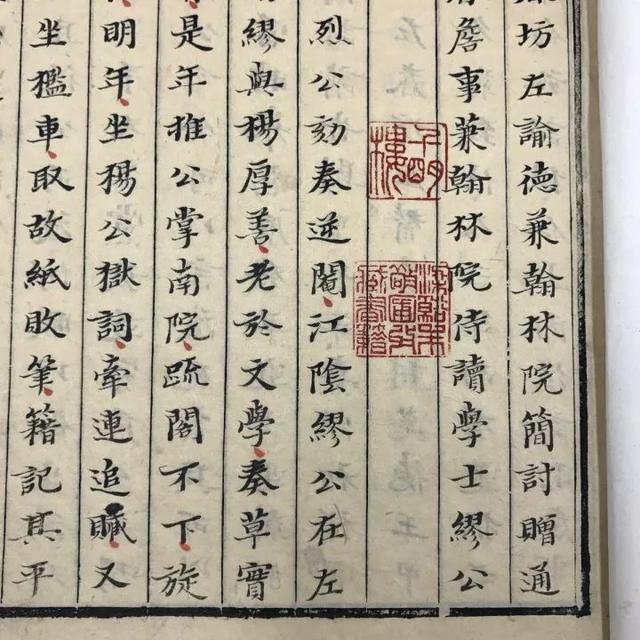 坊左諭德兼翰林院簡討贈通
詹事兼翰林院侍讀學士繆公
烈公劾奏逆閹江陰繆公在左
繆與楊厚善老於文學奏草實
是年推公掌南院䟽閣不下旋
明年坐楊公獄詞牽連追贓又
坐檻車取故紙敗筆籍記其平